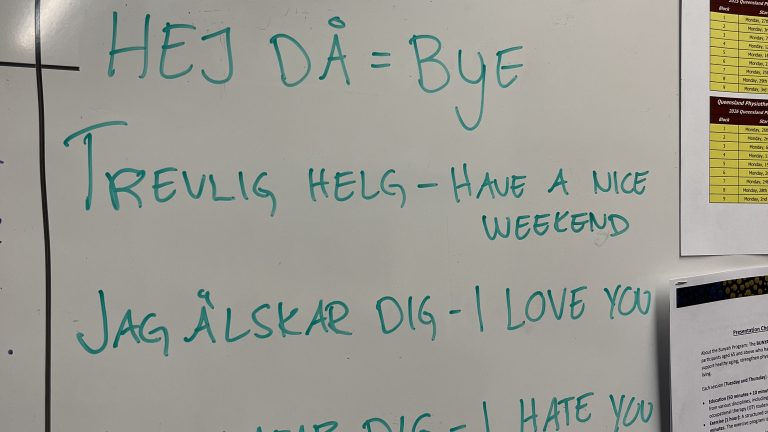 HEJ DÅ = BYE
TREVLIG HELG – HAVE A NICE
WEEKEND
JAG ÄLSKAR DIG – I LOVE YOU
DIG – I HATE YOU
2015 Queensland
Block
1 Monday, 27th
2 Monday,
3 Monday,
4 Monday,
5 Monday,
6 Monday,
7 Monday,
8 Monday,
9 Monday, 3rd
Queensland Physiothe
2016 Queensland
Block Star
1 Monday,
2 Monday,
3 Monday,
4 Monday,
5 Monday,
6 Monday,
7 Monday,
8 Monday,
9 Monday, 2nd
Presentation
About the Bunyah Program: The
participants aged 65 and above who
support healthy aging, strengthen
living.
Each session (Tuesday and Thursday)
Education (50 minutes + 10
from various disciplines, including
occupational therapy (OT)
Exercise (1 hour): A structured
minutes. The exercise program